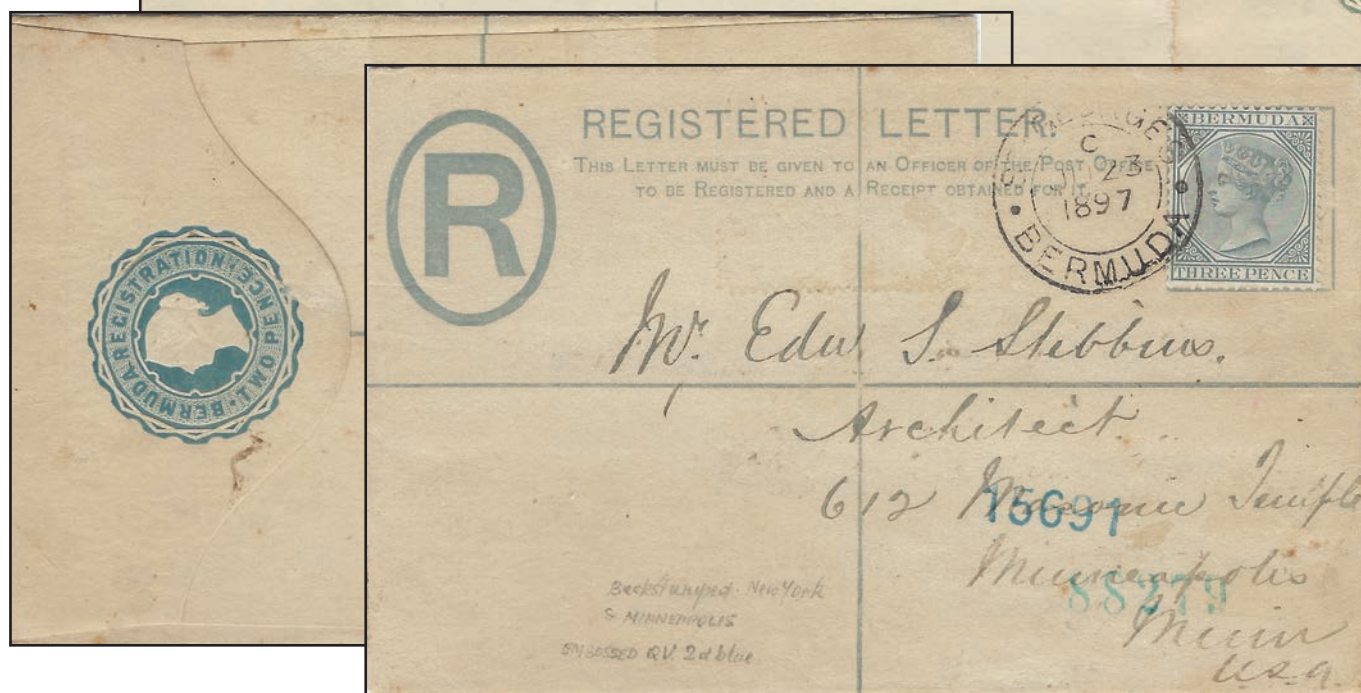 BERMUDA REGISTRATION TWO PENCE
R
REGISTERED LETTER.
THIS LETTER MUST BE GIVEN TO AN OFFICER OF THE POST OFFICE
TO BE REGISTERED AND A RECEIPT OBTAINED FOR IT.
ST. GEORGE'S
C
23
1897
BERMUDA
BERMUDA
THREE PENCE
Mr. Edw. S. Stebbins.
Architect
612 Masonic Temple
15691
Minneapolis
88279
Minn
U.S.A.
Backstamped. New York
& MINNEAPOLIS
EMBOSSED QV. 2d blue